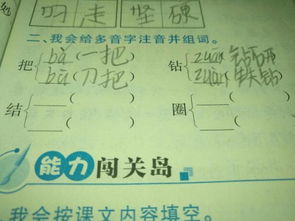 走 坚 硬
二、我会给多音字注音并组词。
把 bǎ (一把) 钻 zuān (钻研)
bà (刀把) zuàn (铁钻)
结 ( ) 圈 ( )
( ) ( )
能力 闯关岛
我会按课文内容填空。